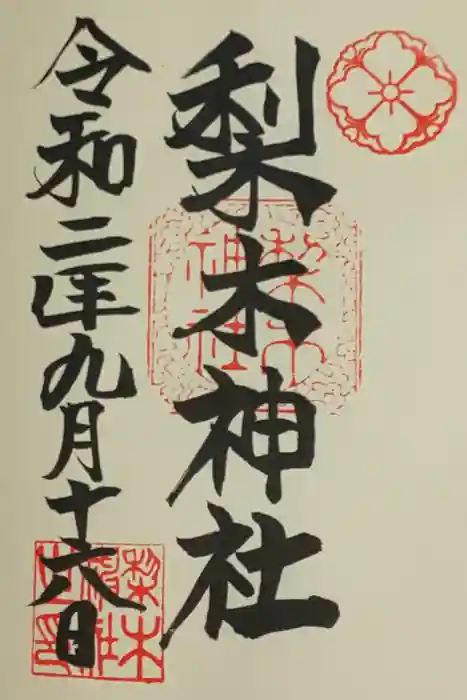 梨木神社
令和二年九月十六日
梨木
神社
梨木
神社
之印